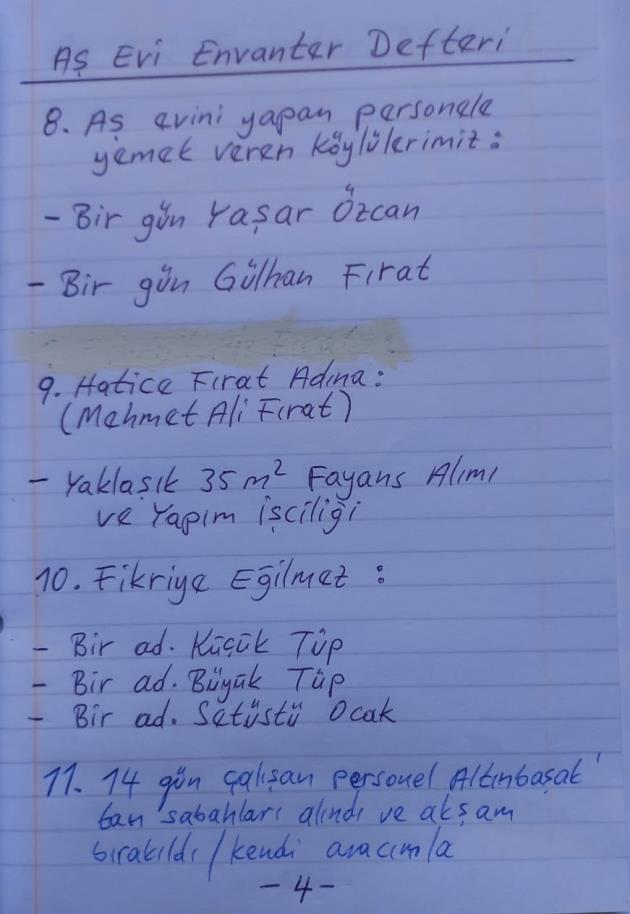 Aş Evi Envanter Defteri
8. Aş evini yapan personele
yemek veren köylülerimiz:
- Bir gün Yaşar Özcan
- Bir gün Gülhan Fırat
9. Hatice Fırat Adına:
(Mehmet Ali Fırat)
- Yaklaşık 35 m² Fayans Alımı
ve Yapım işciliği
10. Fikriye Eğilmez :
- Bir ad. Küçük Tüp
- Bir ad. Büyük Tüp
- Bir ad. Setüstü Ocak
11. 14 gün çalışan personel Altınbaşak'
tan sabahları alındı ve akşam
bırakıldı/kendi aracımla
- 4 -